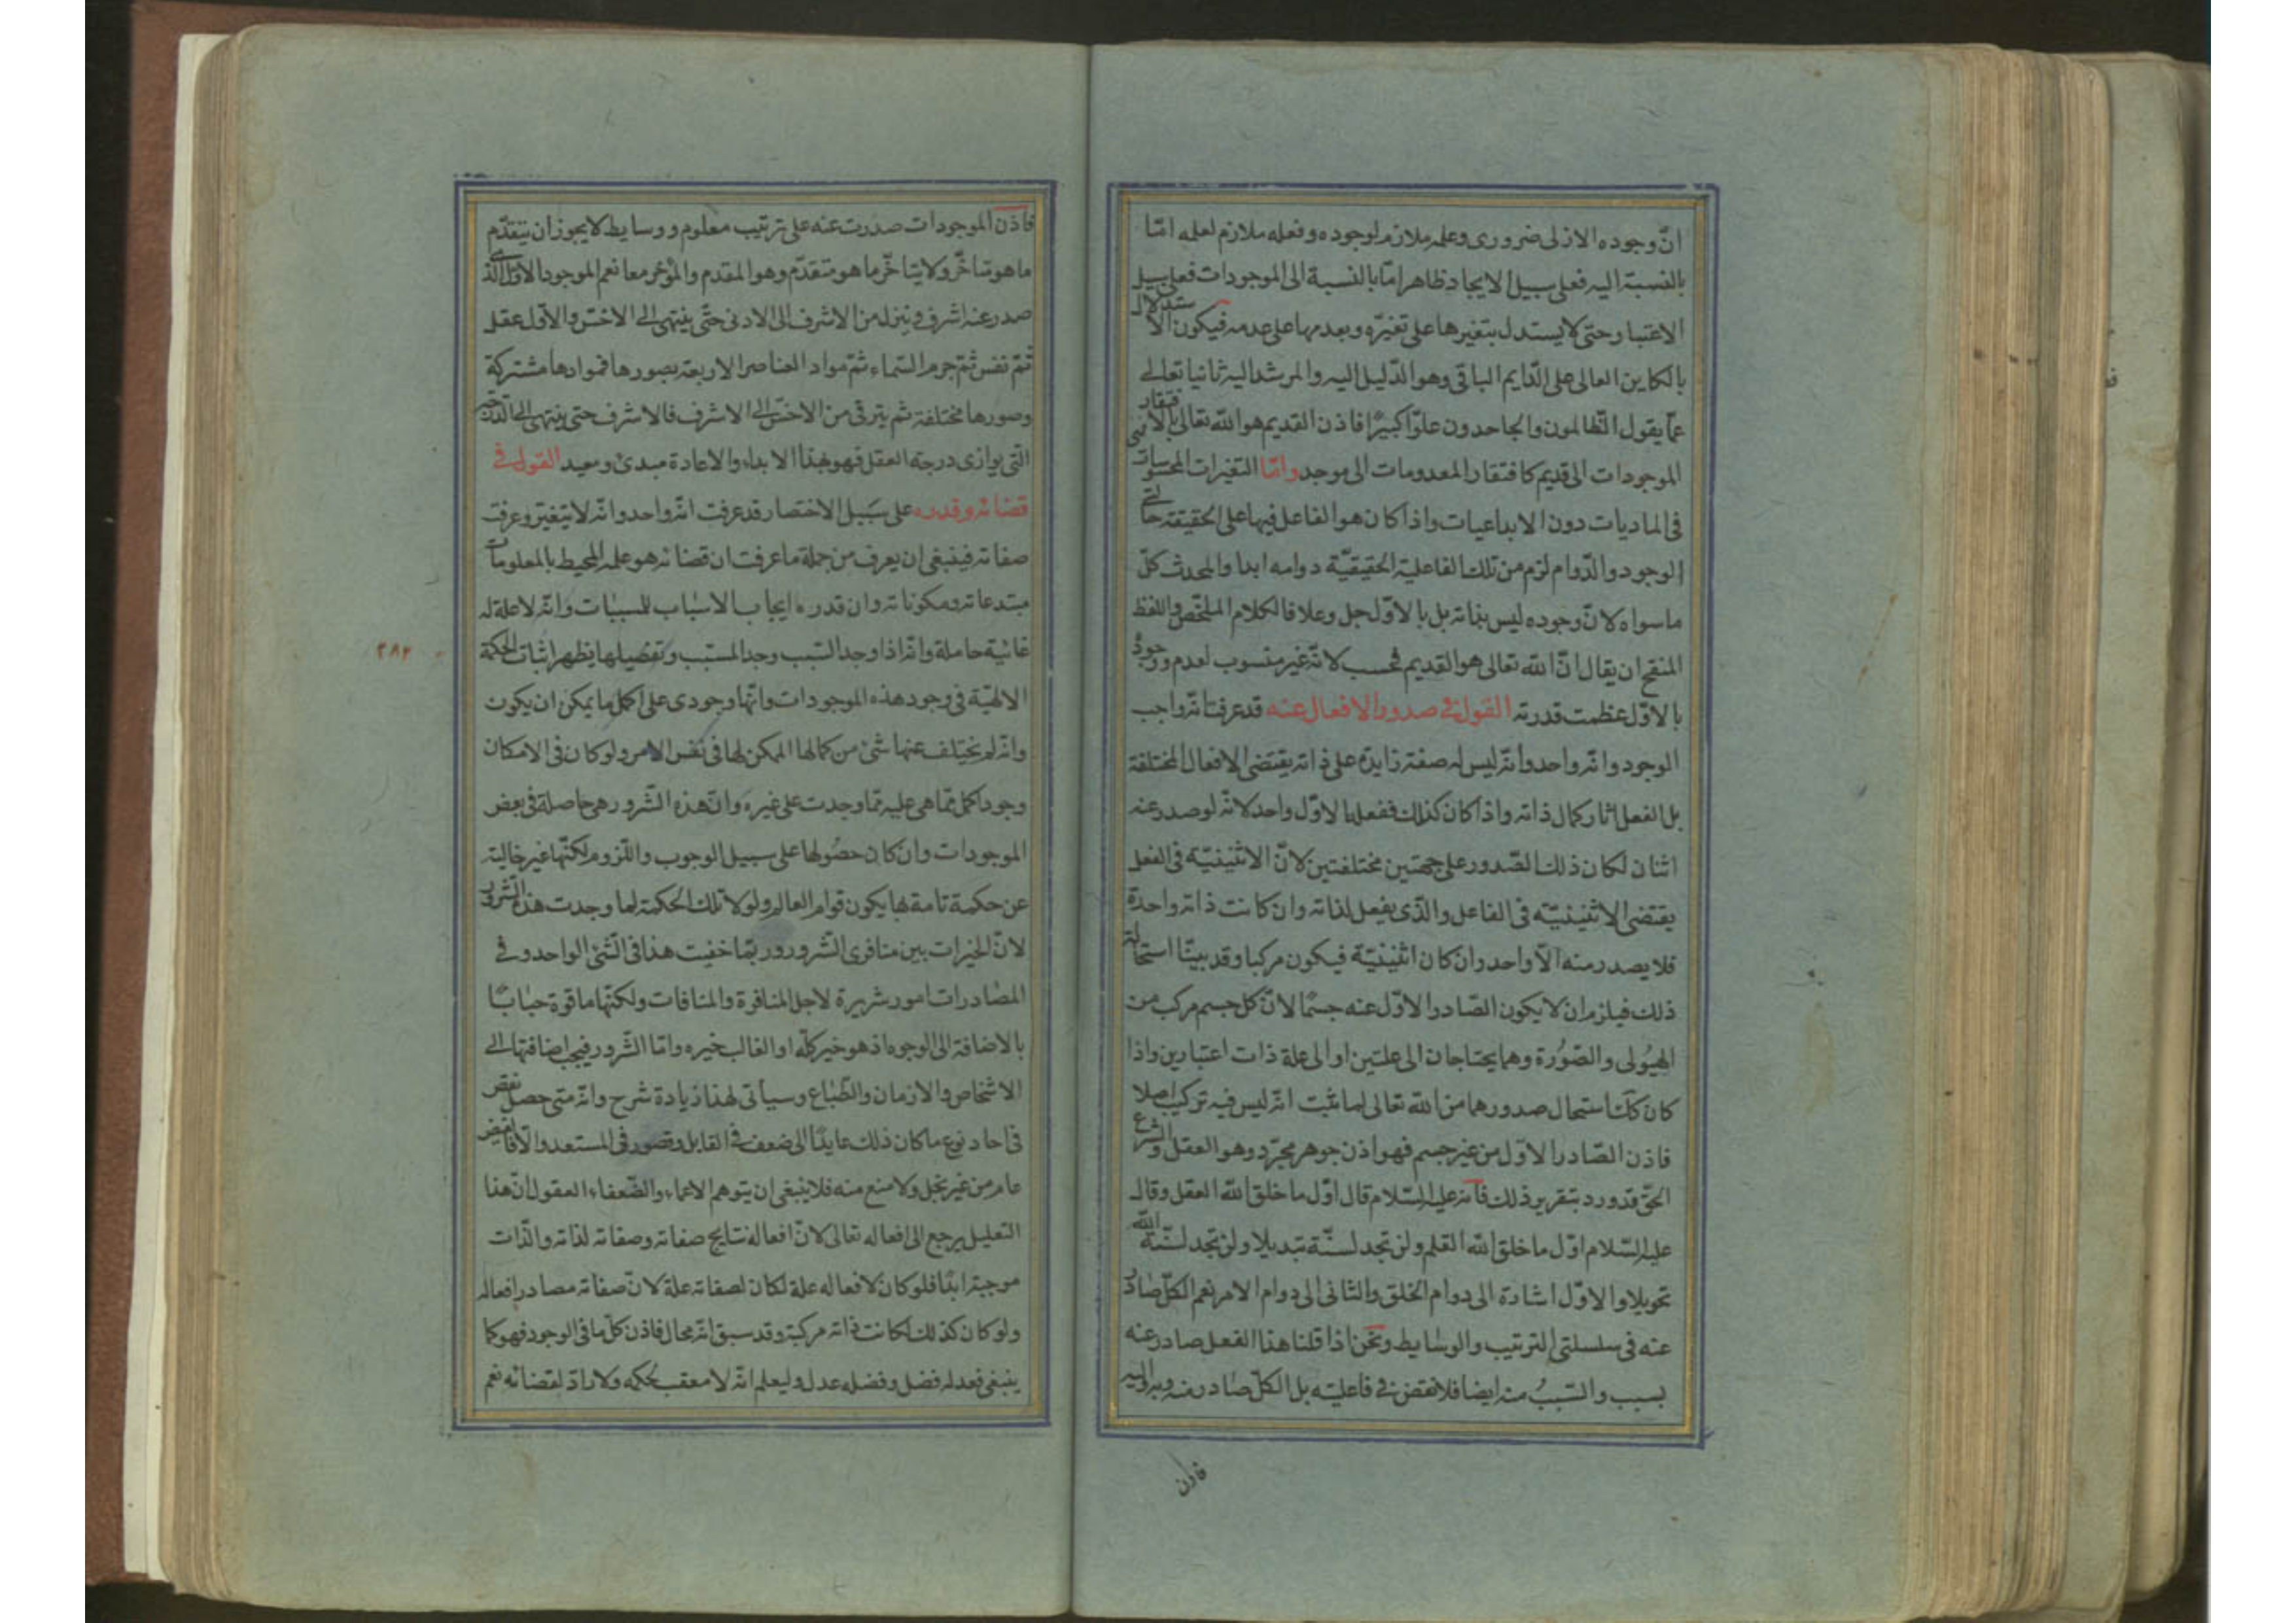 انّ وجوده الازلى ضرورى وعلمه ملازم لوجوده وفعله ملازم لعلمه امّا
بالنسبة اليه فعلى سبيل الايجاد ظاهرا امّا بالنسبة الى الموجودات فعلى سبيل
الاعتبار وحتى لا يستدل بتغيرها على تغيّره وبعدمها على عدمه فيكون الاستدلال
بالكاين العالى على الدّايم الباقى وهو الدّليل اليه والمرشد اليه ثانيا تعالى
عمّا يقول الظّالمون والجاحدون علوّا كبيرًا فاذن القديم هو الله تعالى بالافتقار
الموجودات الى قديم كافتقار المعدومات الى موجد وامّا التغيرات المحسوسات
فى الماديات دون الابداعيات واذا كان هو الفاعل فيها على الحقيقة حالتى
الوجود والدّوام لزم من تلك الفاعلية الحقيقيّة دوامه ابدا والمحدث كلّ
ما سواه لانّ وجوده ليس بذاته بل بالاوّل جل وعلا فالكلام الملخّص واللفظ
المنقح ان يقال انّ الله تعالى هو القديم فحسب لانّه غير منسوب لعدم ووجودٌ
بالاوّل عظمت قدرته القول فى صدور الافعال عنه قد عرفت انّه واجب
الوجود وانّه واحد وانّه ليس له صفة زايدة على ذاته يقتضى الافعال المختلفة
بل الفعل اثار كمال ذاته واذا كان كذلك ففعله الاوّل واحد لانّه لو صدر عنه
اثنان لكان ذلك الصّدور على جهتين مختلفتين لانّ الاثنينيّة فى الفعل
يقتضى الاثنينيّة فى الفاعل والّذى يفعل لذاته وان كانت ذاته واحدة
فلا يصدر منه الّا واحد وان كان اثنينيّة فيكون مركبا وقد بيّنّا استحالته
ذلك فيلزم ان لا يكون الصّادر الاوّل عنه جسمًا لانّ كل جسم مركب من
الهيُولى والصّوُرة وهما يحتاجان الى علتين او الى علة ذات اعتبارين واذا
كان كك استحال صدورهما من الله تعالى لما ثبت انّه ليس فيه تركيب اصلا
فاذن الصّادر الاوّل من غير جسم فهو اذن جوهر مجرّد وهو العقل والشرع
الحق قد ورد بتقرير ذلك فانّه عليه السّلام قال اوّل ما خلق الله العقل وقال
عليه السّلام اوّل ما خلق الله القلم ولن تجد لسنّة تبديلا ولن تجد لسنّة الله
تحويلا والاوّل اشارة الى دوام الخلق والثانى الى دوام الامر نعم الكلّ صادر
عنه فى سلسلتى الترتيب والوسايط ونحن اذا قلنا هذا الفعل صادر عنه
بسبب والسّببُ منه ايضا فلا نقض فى فاعليّته بل الكلّ صادر منه وبه واليه
فاذن
فاذن الموجودات صدرت عنه على ترتيب معلوم ووسايط لا يجوز ان يتقدّم
ما هو متاخّر ولا يتاخّر ما هو متقدّم وهو المقدم والمؤخر معا نعم الموجود الاوّل الّذى
صدر عنه اشرف وينزل من الاشرف الى الادنى حتّى ينتهى الى الاخسّ والاوّل عقل
ثمّ نفس ثمّ جرم السّماء ثمّ مواد العناصر الاربعة بصورها فموادها مشتركة
وصورها مختلفة ثم يترقى من الاخسّ الى الاشرف فالاشرف حتى ينتهى الى الدّرجة
التى يوازى درجة العقل فهو بهذا الابداء والاعادة مبدئ ومعيد القول فى
قضائه وقدره على سَبيل الاختصار قد عرفت انّه واحد وانّه لا يتغيّر وعرفت
صفاته فينبغى ان يعرف من جملة ما عرفت ان قضائه هو علمه المحيط بالمعلومات
مبتدعاته ومكوناته وان قدره ايجاب الاسباب للسببات وانّه لا علة له
غائية حاملة وانّه اذا وجد السّبب وجد المسبّب وتفصيلها يظهر اثبات الحكمة
الالهيّة فى وجود هذه الموجودات وانّها وجودى على اكمل ما يمكن ان يكون
وانّه لم يختلف عنها شئ من كمالها الممكن لها فى نفس الامر ولو كان فى الامكان
وجود اكمل ممّا هى عليه ممّا وجدت على غيره وانّ هذه الشّرور هى حاصلة فى بعض
الموجودات وان كان حصُولها على سبيل الوجوب واللّزوم لكنّها غير خالية
عن حكمة تامة بها يكون قوام العالم ولولا تلك الحكمة لما وجدت هذه الشّرور
لانّ الخيرات بين منافرى الشّرور وربّما خفيت هذا فى الشّئ الواحد وفى
المصادرات امور شريرة لاجل المنافرة والمنافات ولكنّها
بالاضافة الى الوجوه اذ هو خير كلّه او الغالب خيره وامّا الشّرور فيجب اضافتها الى
الاشخاص والازمان والطّباع وسيأتى لهذا زيادة شرح وانّه متى حصل نقص
فى احاد نوع ما كان ذلك عايدًا الى ضعف فى القابل وقصور فى المستعد والّا فالفيض
عام من غير بخل ولا منع منه فلا ينبغى ان يتوهم الاعماء والضّعفاء العقول انّ هذا
التعليل يرجع الى افعاله تعالى لانّ افعاله نتايج صفاته وصفاته لذاته والذّات
موجبة ابدًا فلو كان لافعاله علة لكان لصفاته علة لانّ صفاته مصادر افعاله
ولو كان كذلك لكانت ذاته مركبة وقد سبق انّه محال فاذن كلّ ما فى الوجود فهو كما
ينبغى فعدله فضل وفضله عدل وليعلم انّه لا معقب لحكمه ولا رادّ لقضائه نعم
٢٨٢